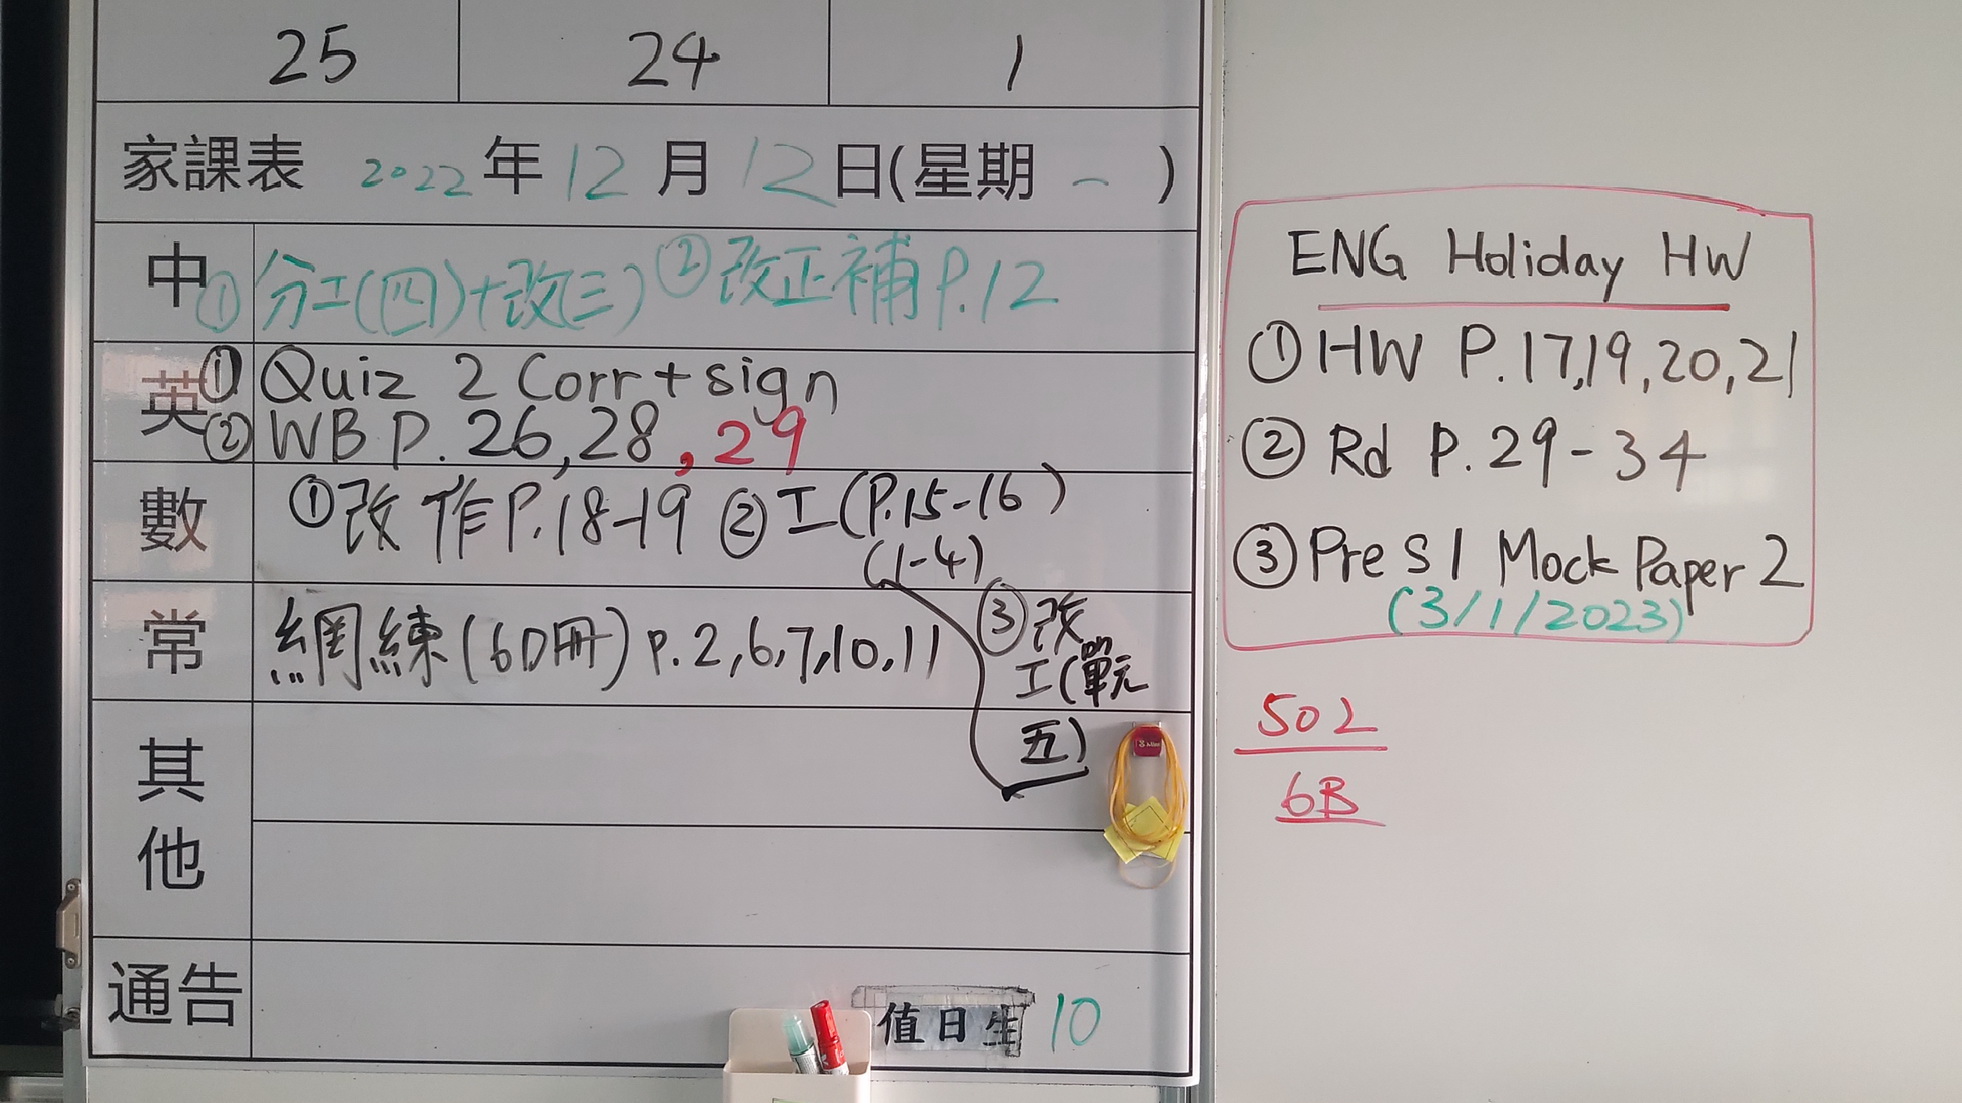 25 24 1
家課表 2022年12月12日(星期一)
中 ①分工(四)+改(三) ②改正補P.12
英 ①Quiz 2 Corr+sign
②WB P.26,28,29
數 ①改作P.18-19 ②工(P.15-16)
(1-4)
③改
工(單元
五)
常 網練(6D冊) p.2,6,7,10,11
其他
通告
值日生 10
ENG Holiday HW
①HW P.17,19,20,21
②Rd P.29-34
③Pre S1 Mock Paper 2
(3/1/2023)
502
6B